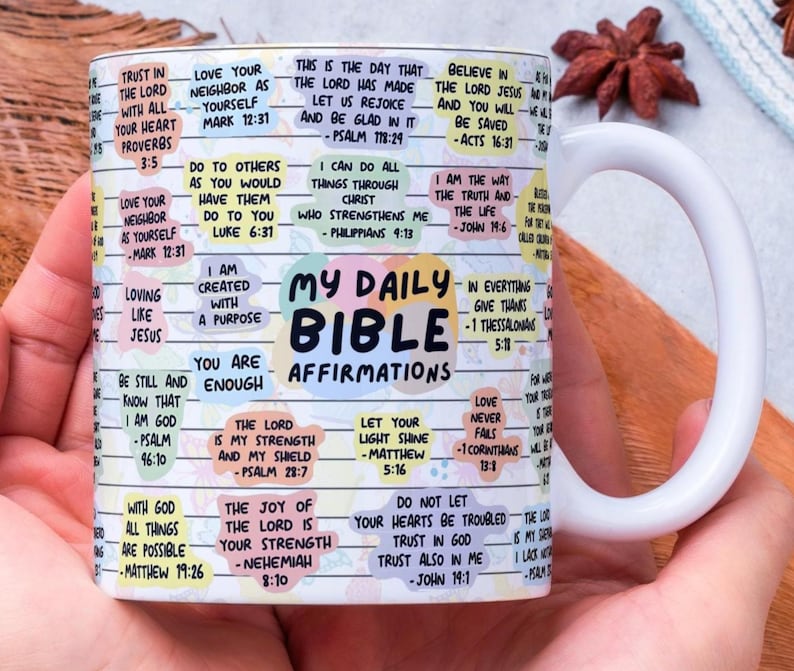 TRUST IN
THE LORD
WITH ALL
YOUR HEART
PROVERBS
3:5
LOVE YOUR
NEIGHBOR AS
YOURSELF
MARK 12:31
THIS IS THE DAY THAT
THE LORD HAS MADE
LET US REJOICE
AND BE GLAD IN IT
- PSALM 118:24
BELIEVE IN
THE LORD JESUS
AND YOU WILL
BE SAVED
- ACTS 16:31
LOVE YOUR
NEIGHBOR
AS YOURSELF
- MARK 12:31
DO TO OTHERS
AS YOU WOULD
HAVE THEM
DO TO YOU
LUKE 6:31
I CAN DO ALL
THINGS THROUGH
CHRIST
WHO STRENGTHENS ME
- PHILIPPIANS 4:13
I AM THE WAY
THE TRUTH AND
THE LIFE
- JOHN 14:6
LOVING
LIKE
JESUS
I AM
CREATED
WITH
A PURPOSE
MY DAILY
BIBLE
AFFIRMATIONS
IN EVERYTHING
GIVE THANKS
-1 THESSALONIANS
5:18
YOU ARE
ENOUGH
BE STILL AND
KNOW THAT
I AM GOD
- PSALM
46:10
THE LORD
IS MY STRENGTH
AND MY SHIELD
- PSALM 28:7
LET YOUR
LIGHT SHINE
- MATTHEW
5:16
LOVE
NEVER
FAILS
-1 CORINTHIANS
13:8
WITH GOD
ALL THINGS
ARE POSSIBLE
- MATTHEW 19:26
THE JOY OF
THE LORD IS
YOUR STRENGTH
- NEHEMIAH
8:10
DO NOT LET
YOUR HEARTS BE TROUBLED
TRUST IN GOD
TRUST ALSO IN ME
- JOHN 14:1
THE LORD
IS MY
I LACK
- PSALM